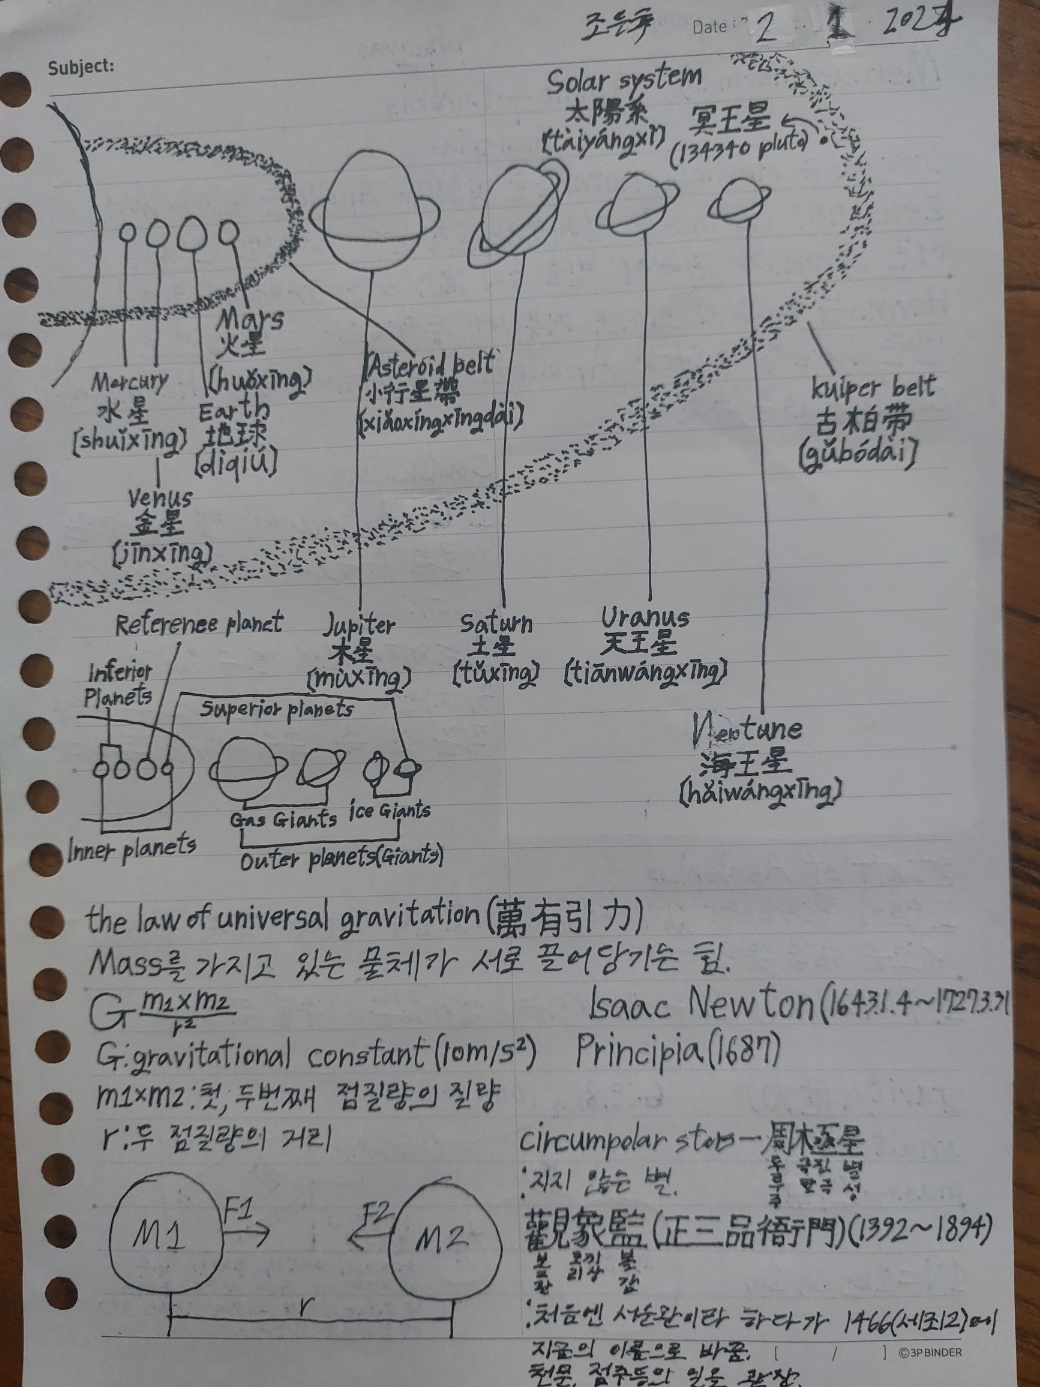 조은후 Date: 2 . 1 . 202
Subject:
Solar system
太陽系
(tàiyángxì)
冥王星
(134340 pluto)
Mars
火星
(huǒxīng)
Mercury
水星
(shuǐxīng)
Earth
地球
(dìqiú)
Venus
金星
(jīnxīng)
Asteroid belt
小行星帶
(xiǎoxíngxīngdài)
kuiper belt
古柏带
(gǔbódài)
Reference planet
Jupiter
木星
(mùxīng)
Saturn
土星
(tǔxīng)
Uranus
天王星
(tiānwángxīng)
Neptune
海王星
(hǎiwángxīng)
Inferior
Planets
Superior planets
Gas Giants
ice Giants
Inner planets
Outer planets(Giants)
the law of universal gravitation(萬有引力)
Mass를 가지고 있는 물체가 서로 끌어당기는 힘.
G m1×m2
r²
Isaac Newton(1643.1.4~1727.3.31
G:gravitational constant(10m/s²) Principia(1687)
m1×m2:첫, 두번째 점질량의 질량
r:두 점질량의 거리
circumpolar stars─周極星
두루 주 극진할 극 별 성
:지지 않는 별.
M1 F1 F2 M2
r
觀象監(正三品衙門)(1392~1894)
볼 관 코끼리 상 볼 감
:처음엔 서운관이라 하다가 1466(세조12)에
지금의 이름으로 바꿈.
천문, 점주등의 일을 관장.
[ / ] ©3PBINDER